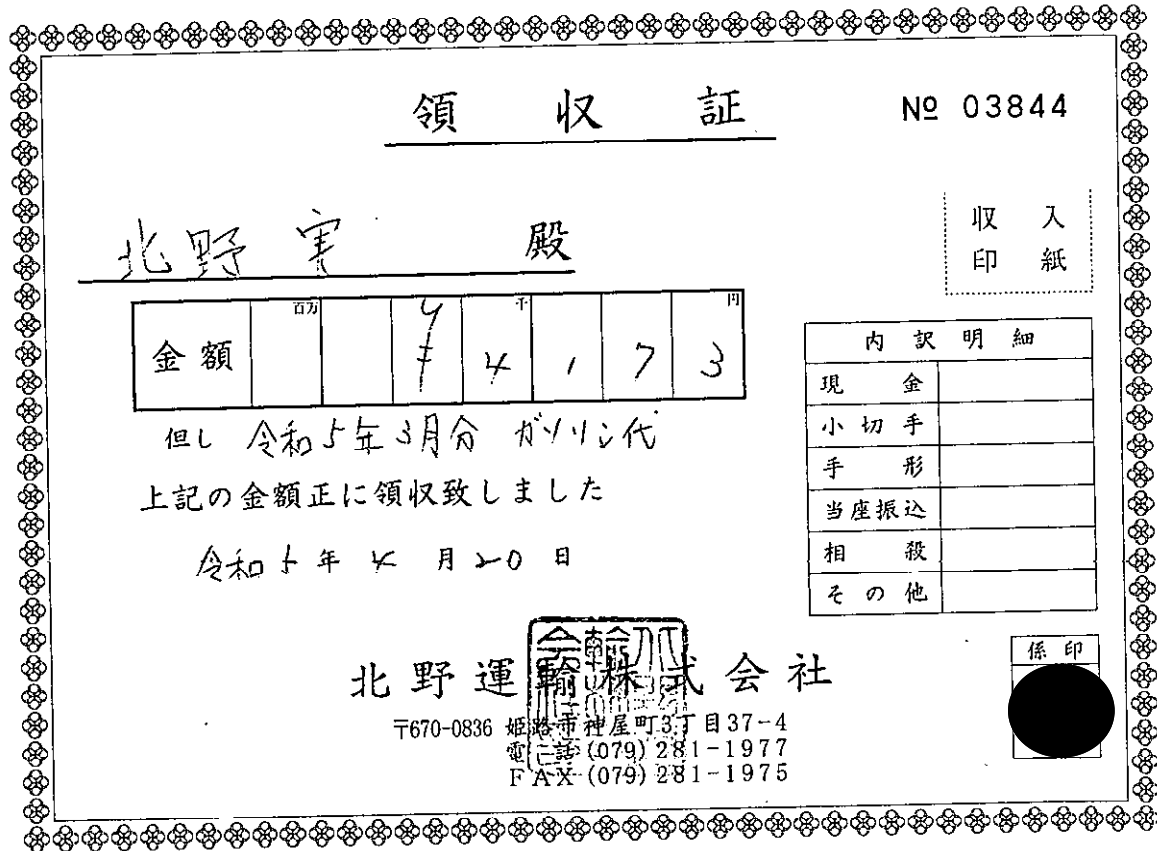 領収証
№ 03844
北野実 殿
収入
印紙
金額 百万 千 円 ¥4,173
但し 令和5年3月分 ガソリン代
上記の金額正に領収致しました
令和5年4月20日
内訳明細
現金
小切手
手形
当座振込
相殺
その他
係印
北野運輸株式会社
〒670-0836 姫路市神屋町3丁目37-4
電話(079)281-1977
FAX(079)281-1975